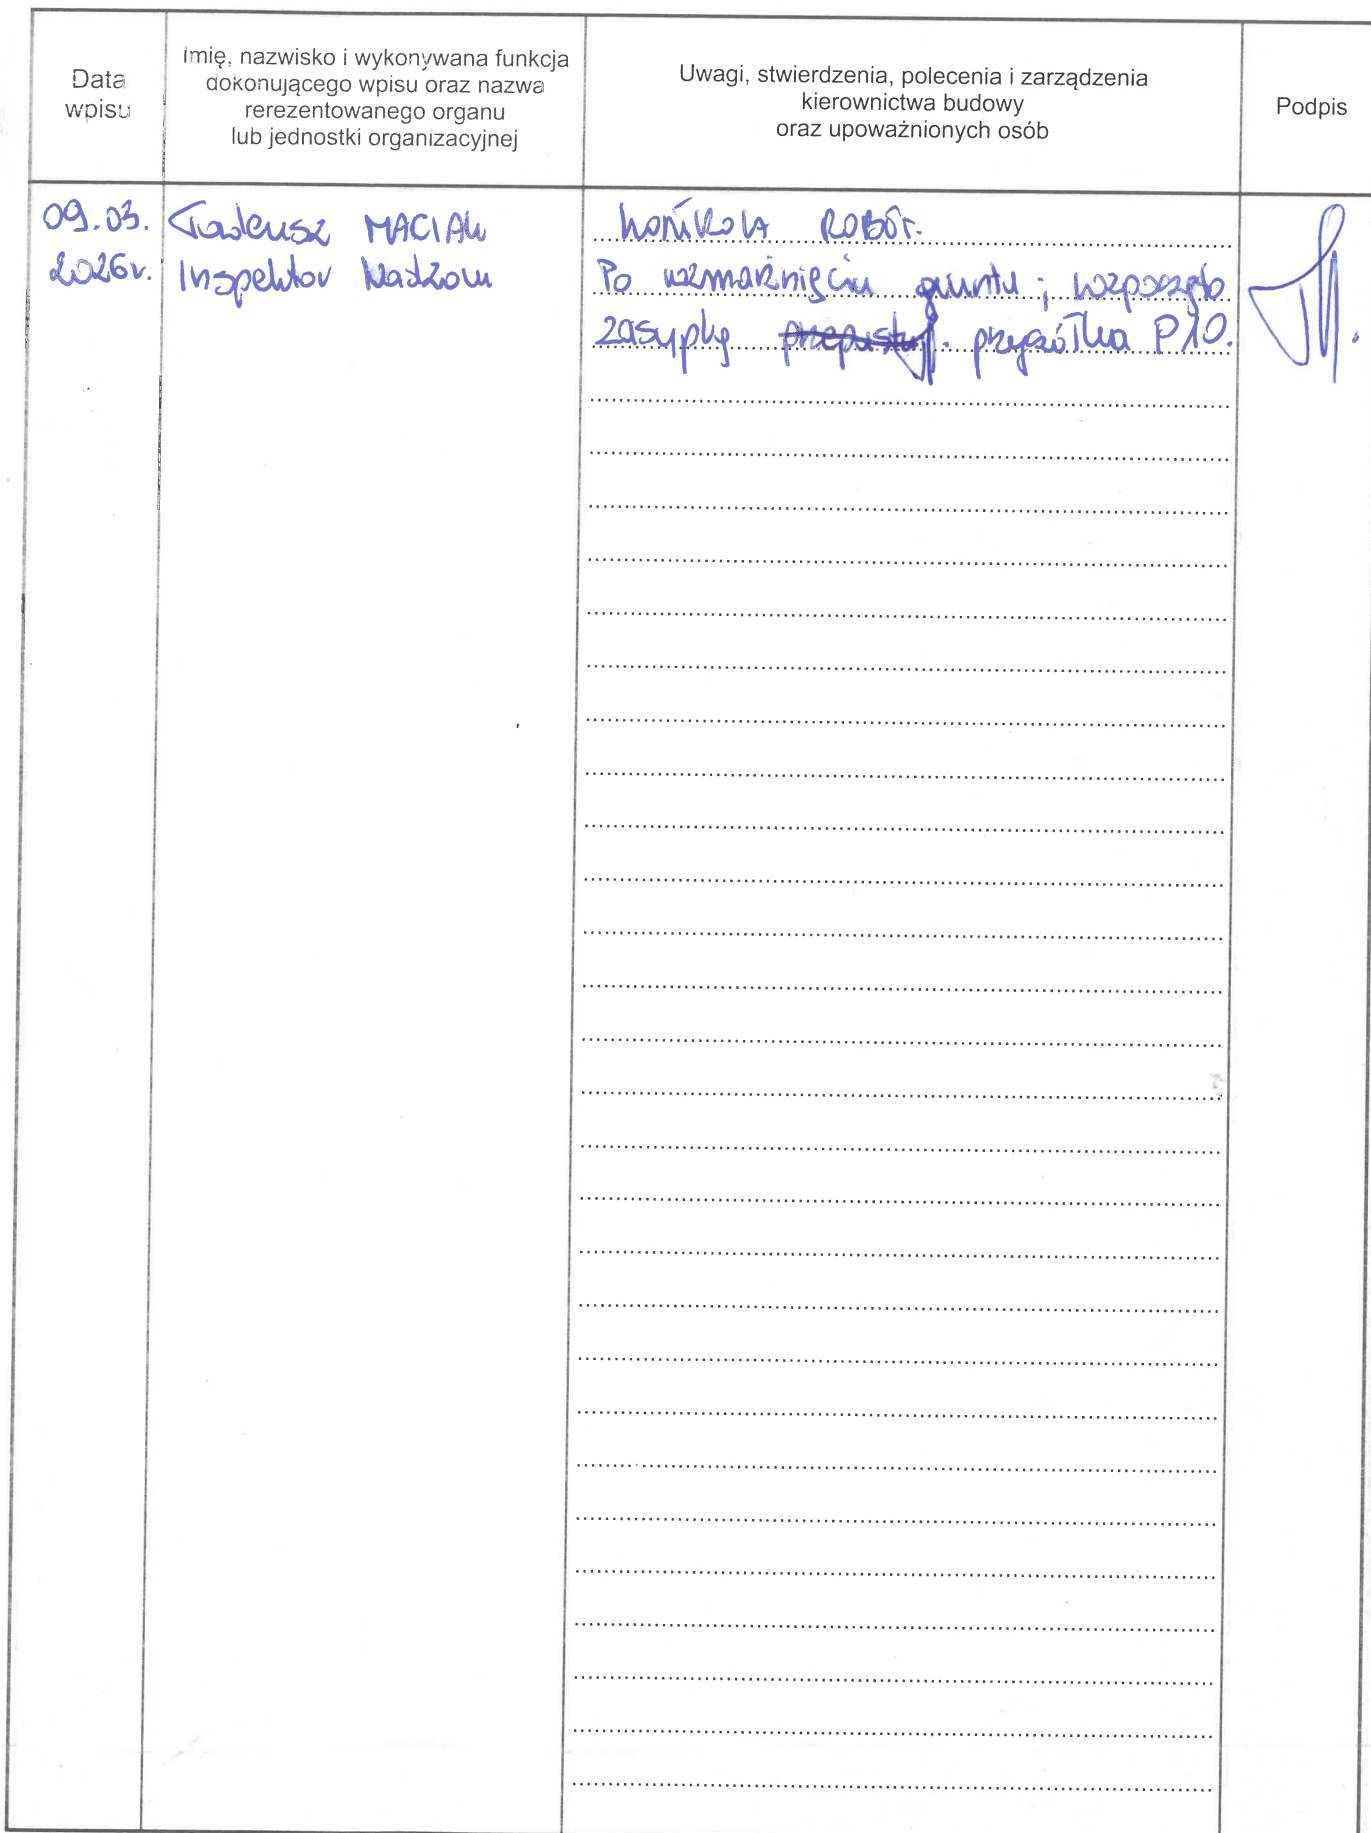 Data
wpisu
Imię, nazwisko i wykonywana funkcja
dokonującego wpisu oraz nazwa
rerezentowanego organu
lub jednostki organizacyjnej
Uwagi, stwierdzenia, polecenia i zarządzenia
kierownictwa budowy
oraz upoważnionych osób
Podpis
09.03.
2026r.
Tadeusz MACIAK
Inspektor Nadzoru
Kontrola ROBÓT.
Po rozmarznięciu gruntu; rozpoczęto
zasypkę przepustu. przyczółka P10.